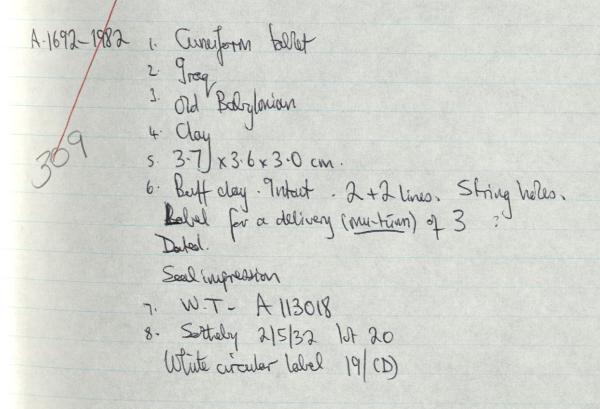 A.1692-1982 1. Cuneiform tablet
2. Iraq
3. Old Babylonian
4. Clay
309
5. 3.7 x 3.6 x 3.0 cm.
6. Buff clay. Intact. 2+2 lines. String holes.
Label for a delivery (mu-túm) of 3 ?
Dated.
Seal impression
7. W.T- A 113018
8. Sotheby 2/5/32 lot 20
White circular label 19/(D)